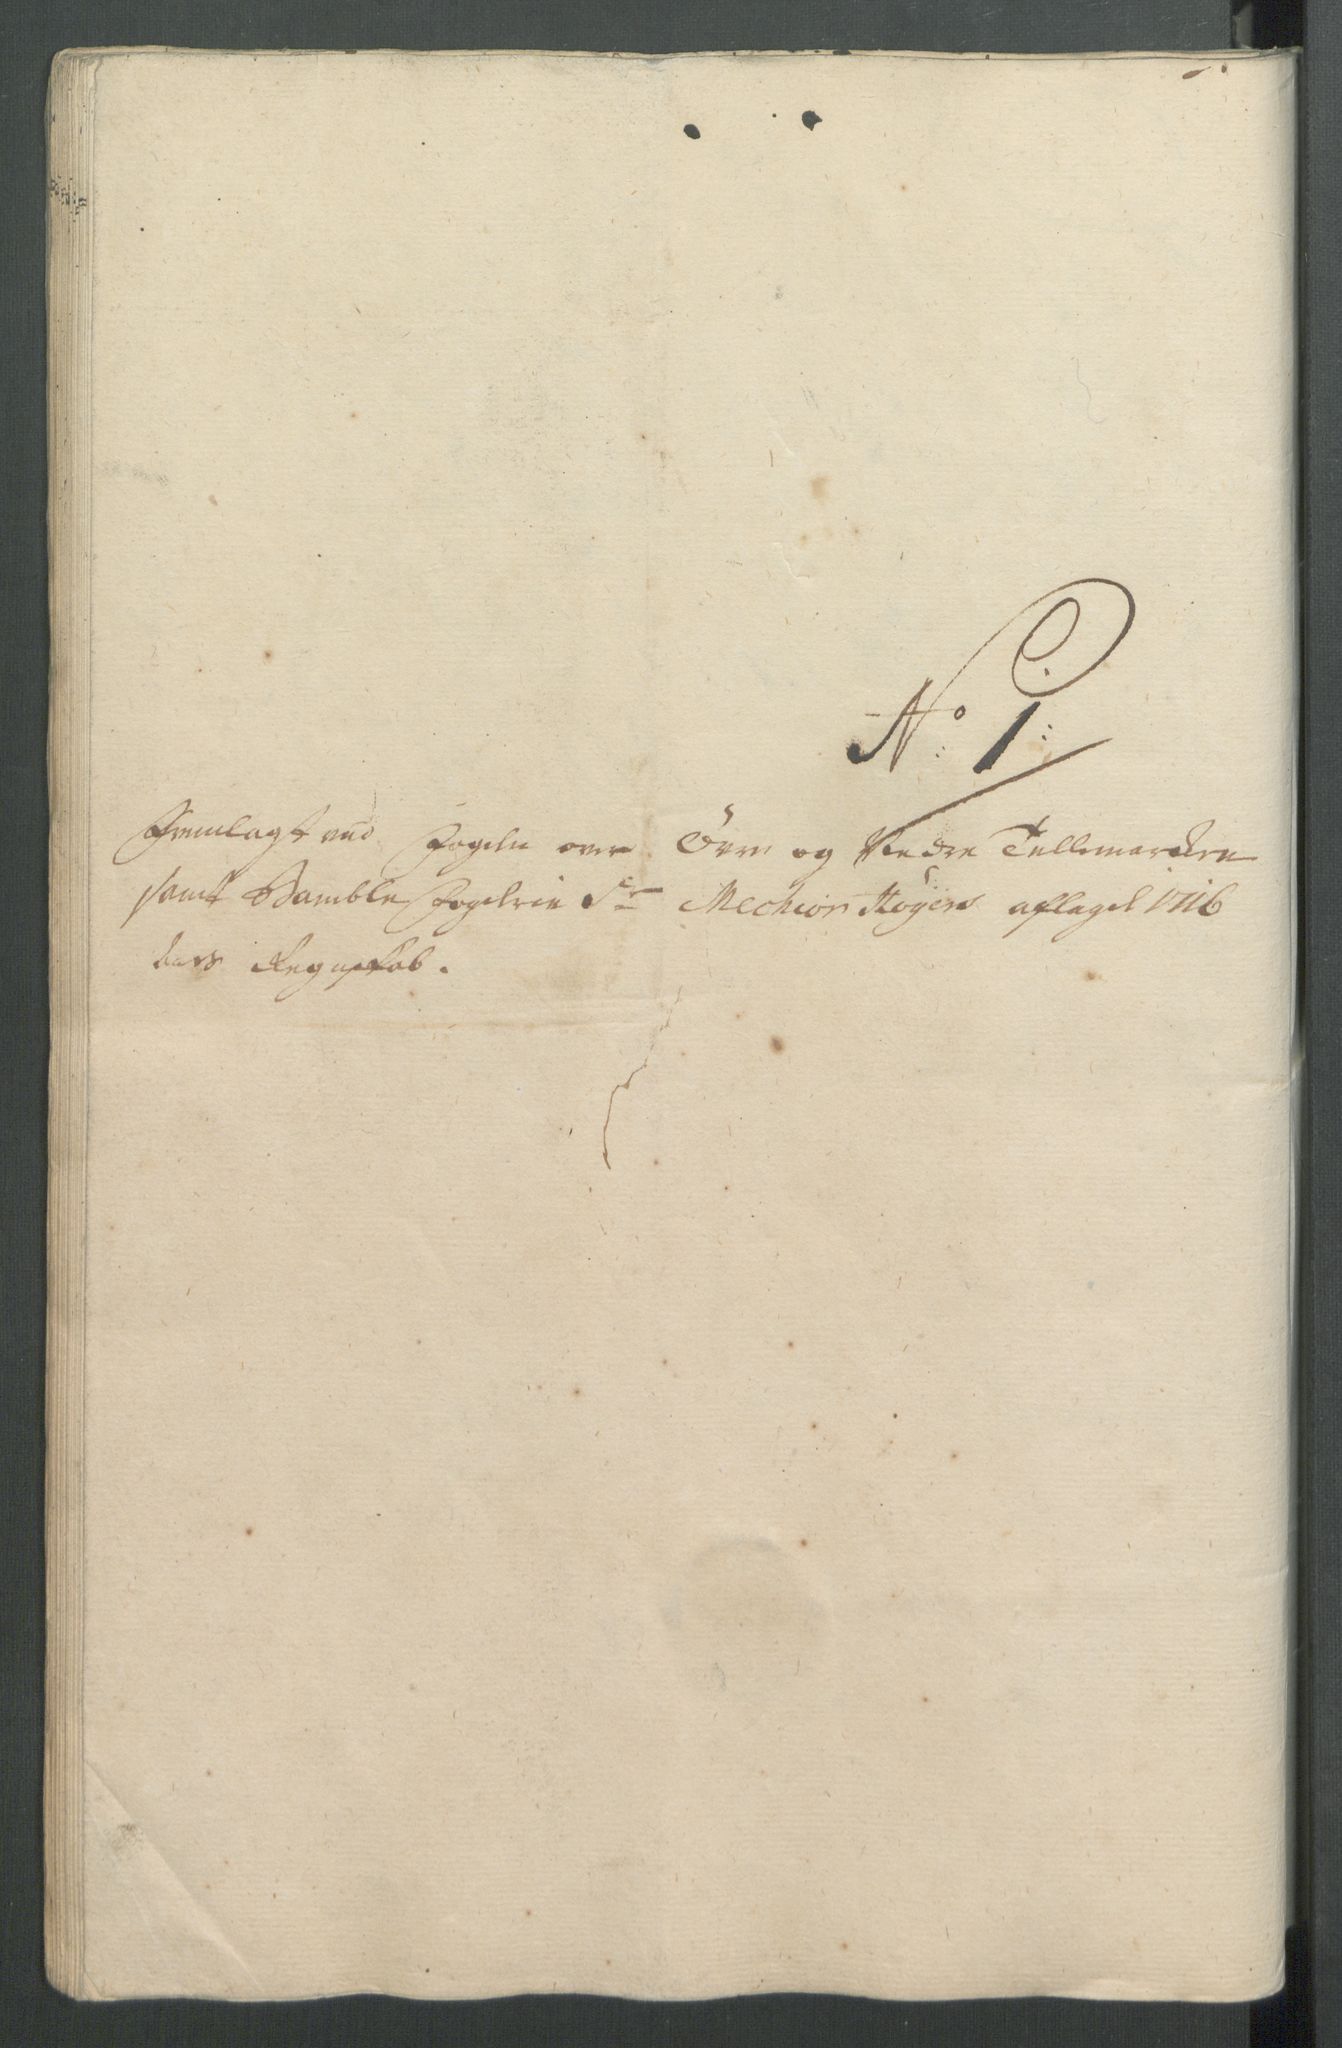 No: 1:
Fremlagt ved Fogden over Øvre og Nedre Tellemarcken
samt Bamble Fogderie Sr Mechior Høyers aflagde 1716
Aars Regnskab.